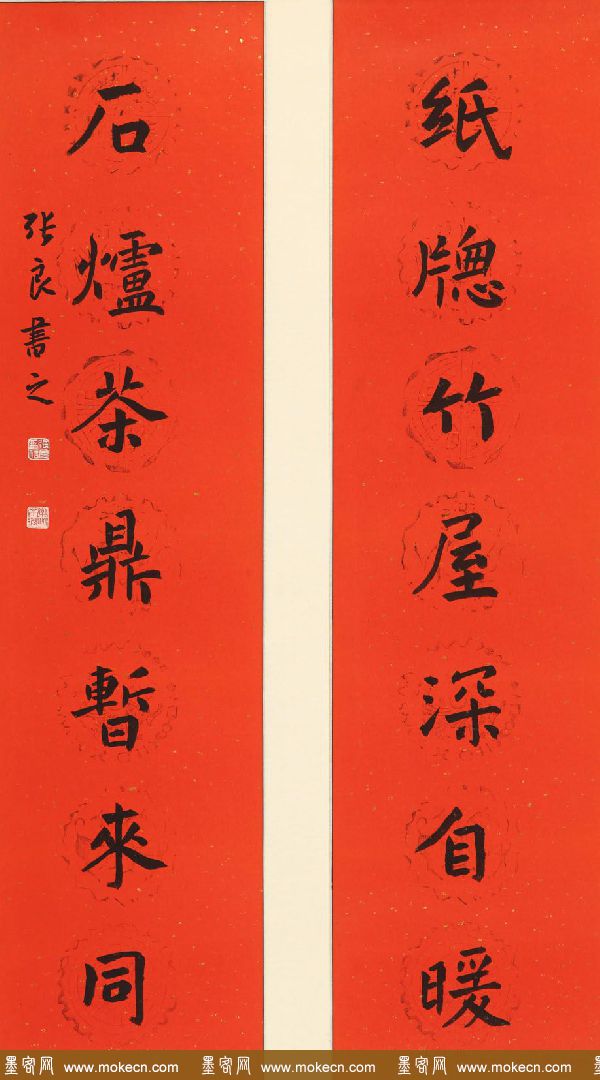 纸牕竹屋深自暖
石爐茶鼎暫來同
张良書之
墨客网 www.mokecn.com 墨客网 www.mokecn.com 墨客网 www.mokecn.com